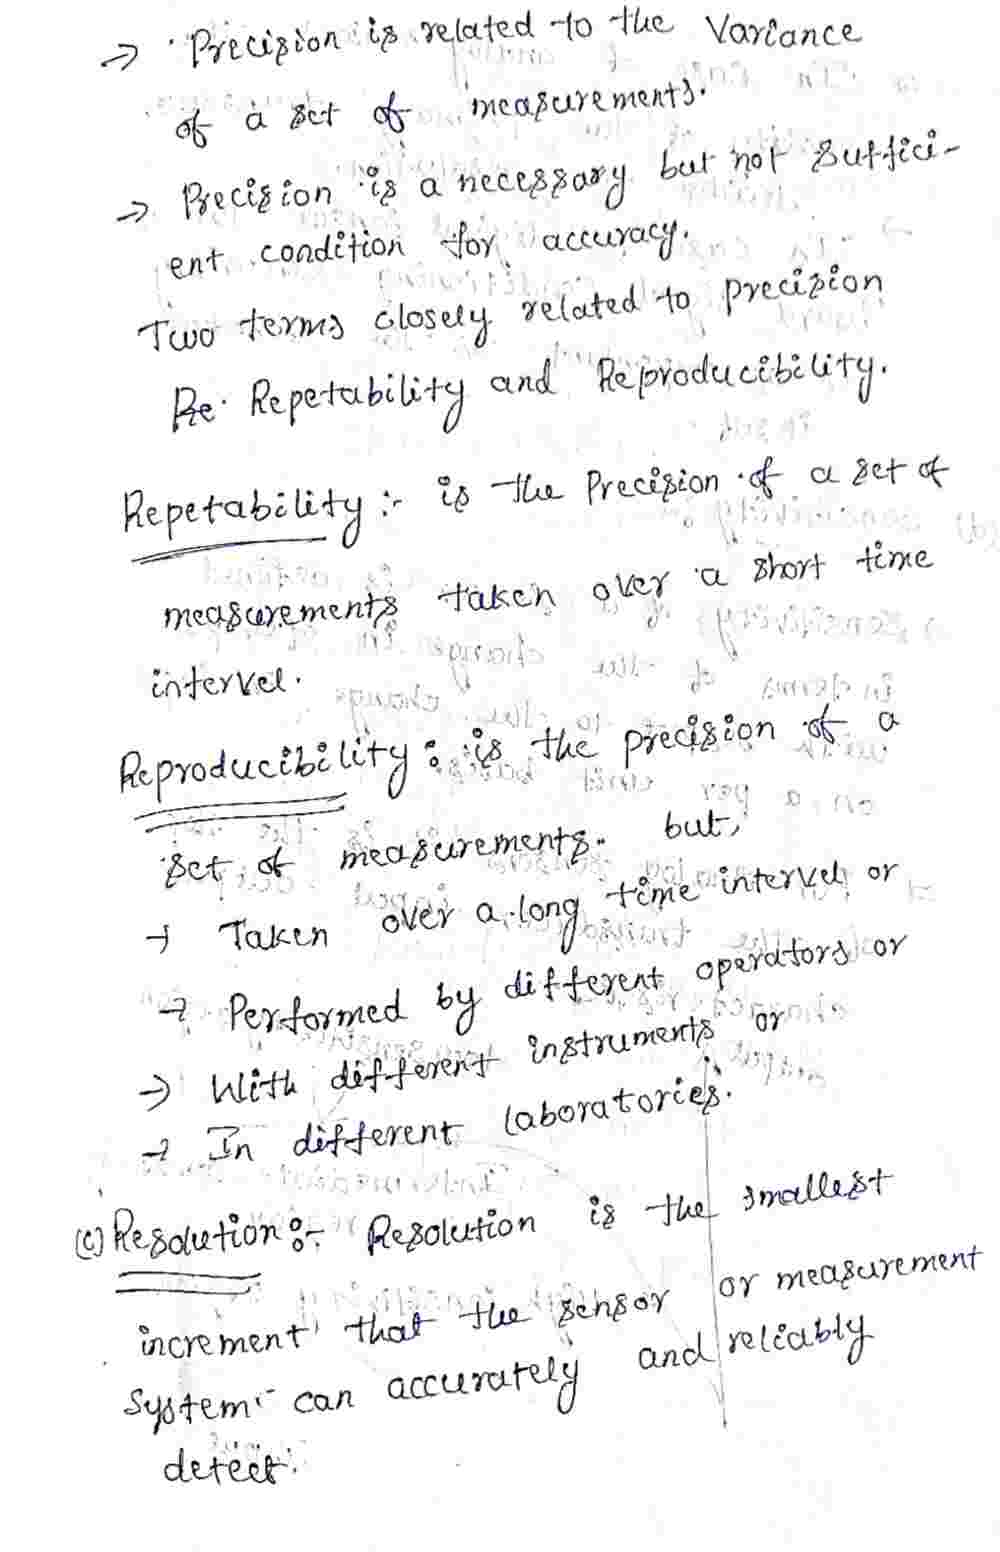 → Precision is related to the Variance
of a set of measurements.
→ Precision is a necessary but not suffici-
ent condition for accuracy.
Two terms closely related to precision
Re Repetability and Reproducibility.
Repetability :- is the Precision of a set of
measurements taken over a short time
intervel.
Reproducibility : is the precision of a
set of measurements. but,
→ Taken over a long time intervel or
→ Performed by different operators or
→ With different instruments or
→ In different laboratories.
(c) Resolution :- Resolution is the smallest
increment that the sensor or measurement
system can accurately and reliably
detect.